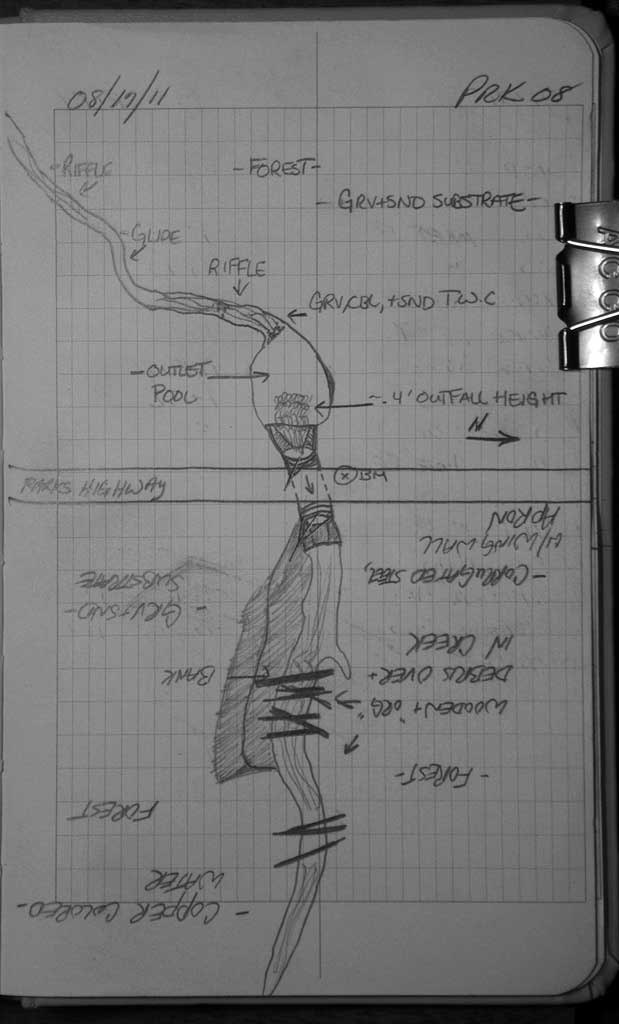 08/17/11
PRK 08
-RIFFLE
-FOREST-
- GRV+SND SUBSTRATE-
-GLIDE
RIFFLE
GRV,CBL,+SND T.W.C
-OUTLET
POOL
~.4' OUTFALL HEIGHT
N
BM
PARKS HIGHWAY
- CORRUGATED STEEL
W/ WINGWALL
APRON
- GRV+SND-
SUBSTRATE
BANK
WOODEN + "ORG"
DEBRIS OVER +
IN CREEK
-FOREST-
FOREST
- COPPER COLORED-
WATER
ACCO